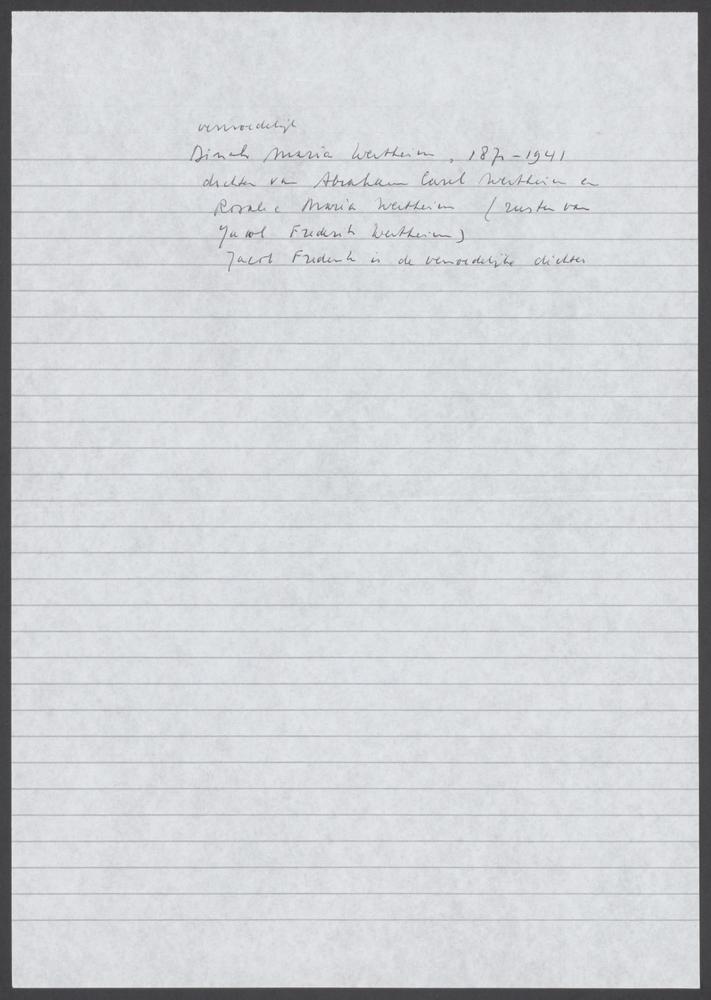 vermoedelijk
Dinah Maria Wertheim, 1871-1941
dochter van Abraham Carel Wertheim en
Rosalie Maria Wertheim (zuster van
Jacob Frederik Wertheim)
Jacob Frederik is de vermoedelijke dichter